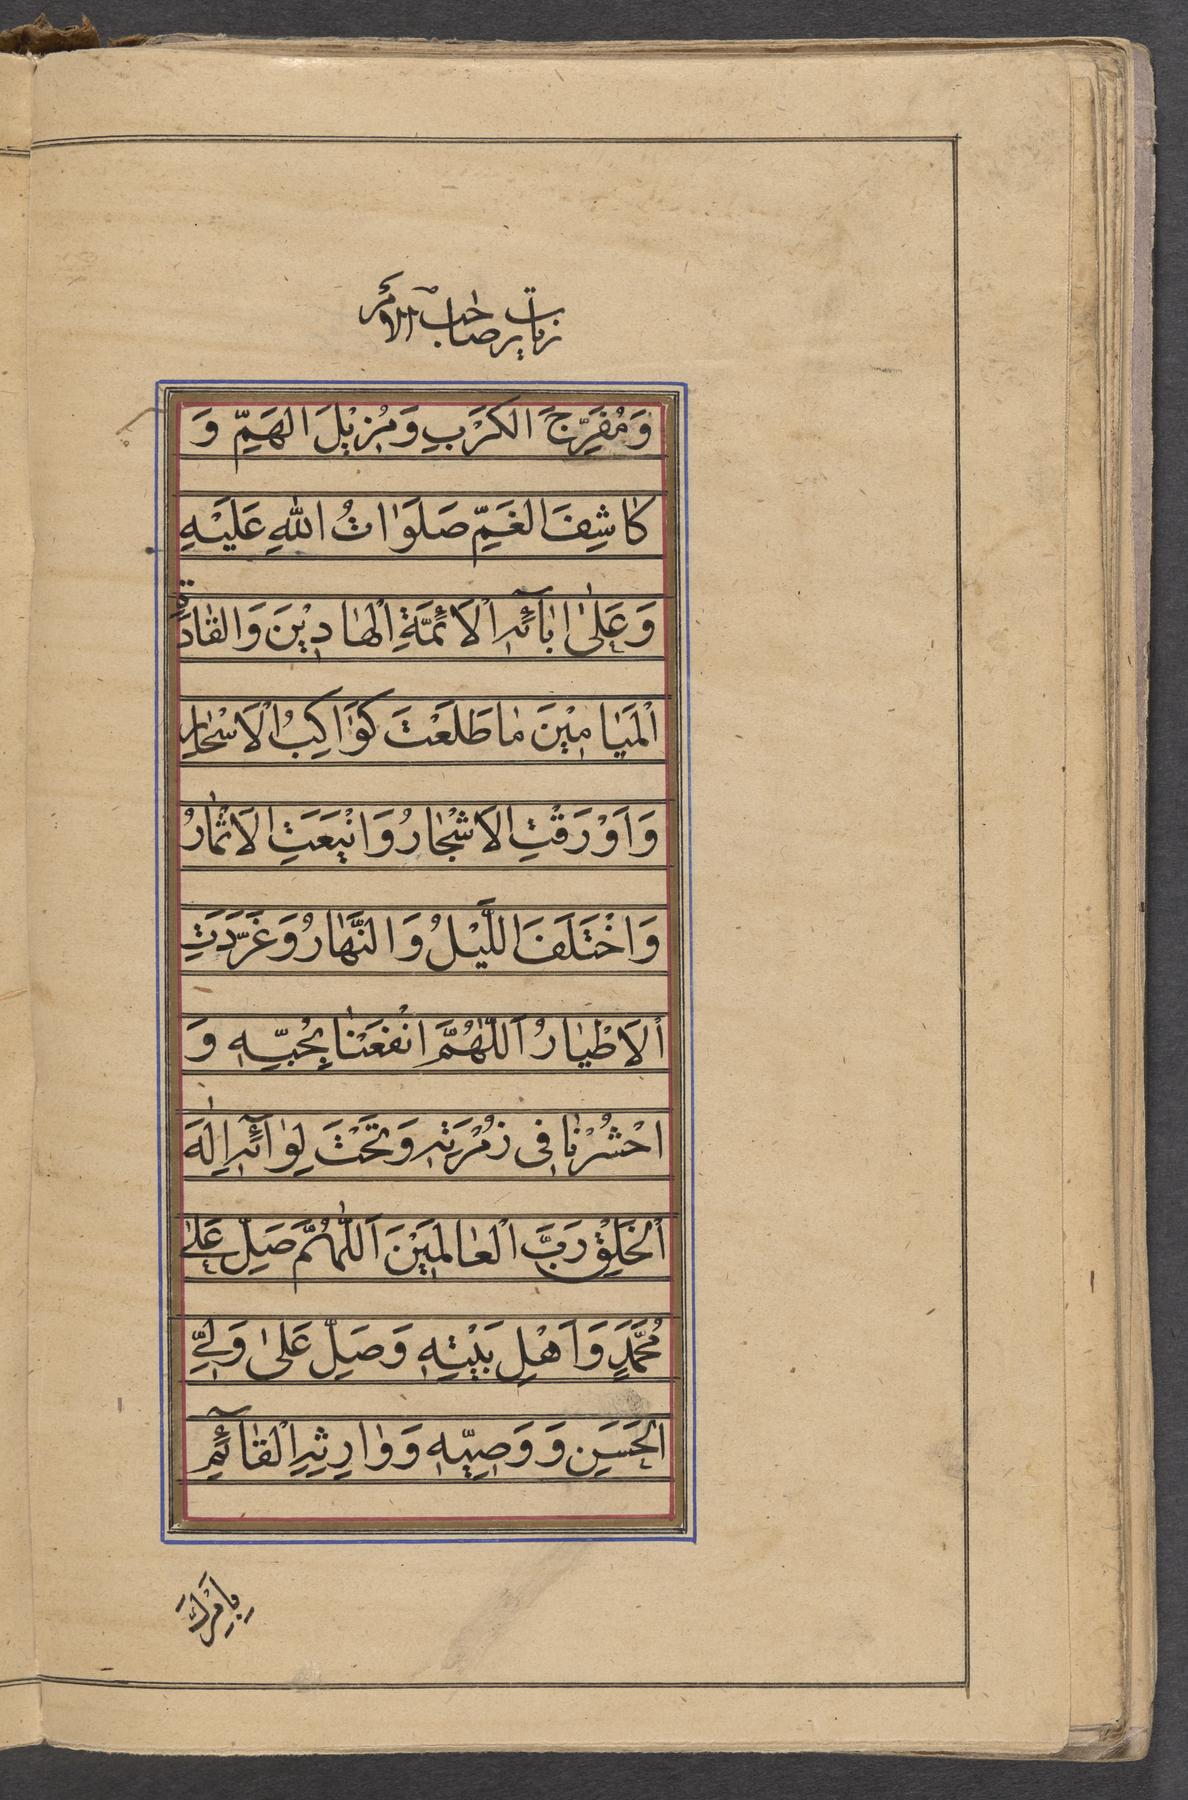 زیارت صاحب الامر
وَمُفَرِّجَ الْكَرْبِ وَمُزِيْلَ الْهَمِّ وَ
كَاشِفَ الْغَمِّ صَلَوَاتُ اللهِ عَلَيْهِ
وَعَلٰى اٰبَآئِهِ الْاَئِمَّةِ الْهَادِيْنَ وَالْقَادَةِ
الْمَيَامِيْنَ مَا طَلَعَتْ كَوَاكِبُ الْاَسْحَارِ
وَاَوْرَقَتِ الْاَشْجَارُ وَاَيْنَعَتِ الْاَثْمَارُ
وَاخْتَلَفَ اللَّيْلُ وَالنَّهَارُ وَغَرَّدَتِ
الْاَطْيَارُ اَللّٰهُمَّ انْفَعْنَا بِحُبِّهِ وَ
احْشُرْنَا فِى زُمْرَتِهِ وَتَحْتَ لِوَآئِهِ اِلٰهَ
الْخَلْقِ رَبَّ الْعَالَمِيْنَ اَللّٰهُمَّ صَلِّ عَلٰى
مُحَمَّدٍ وَاَهْلِ بَيْتِهِ وَصَلِّ عَلٰى وَلِىِّ
الْحَسَنِ وَوَصِيِّهِ وَوَارِثِهِ الْقَآئِمِ
بِاَمْرِكَ